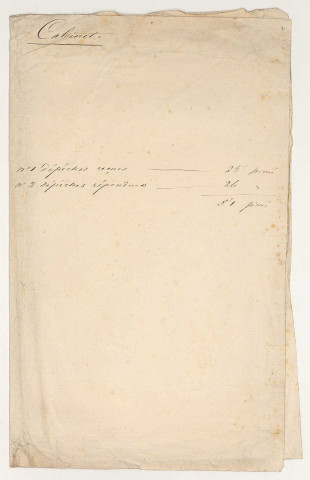 Cabinet.
n° 1 dépêches reçues 25 pièces
n° 2 dépêches répondues 26 "
51 pièces